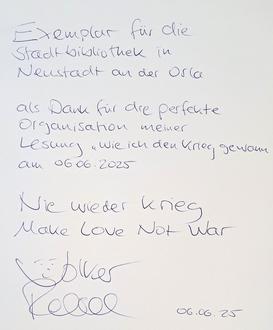 Exemplar für die
Stadtbibliothek in
Neustadt an der Orla
als Dank für die perfekte
Organisation meiner
Lesung „Wie ich den Krieg gewann
am 06.06.2025
Nie wieder Krieg
Make Love Not War
Volker
06.06.25